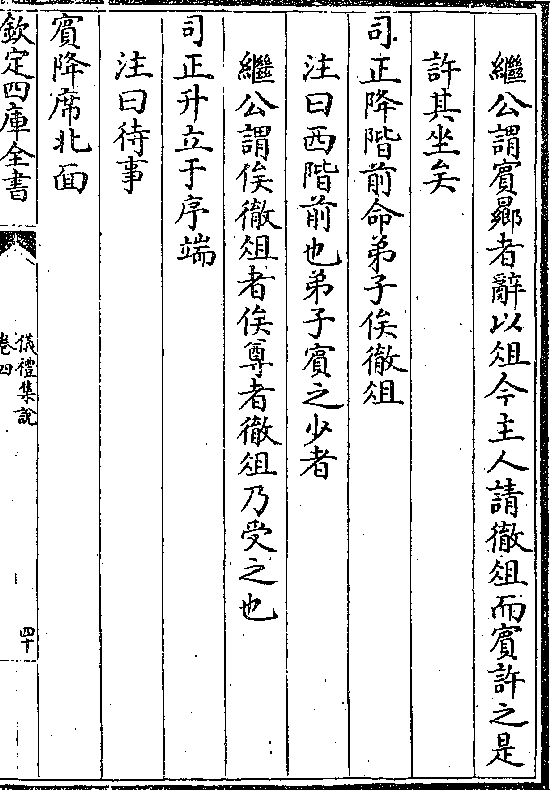 繼公謂賓曏者辭以俎今主人請徹俎而賓許之是
許其坐矣
司正降階前命弟子俟徹俎
注曰西階前也弟子賓之少者
繼公謂俟徹俎者俟尊者徹俎乃受之也
司正升立于序端
注曰待事
賓降席北面
欽定四庫全書
儀禮集說
卷四
四十